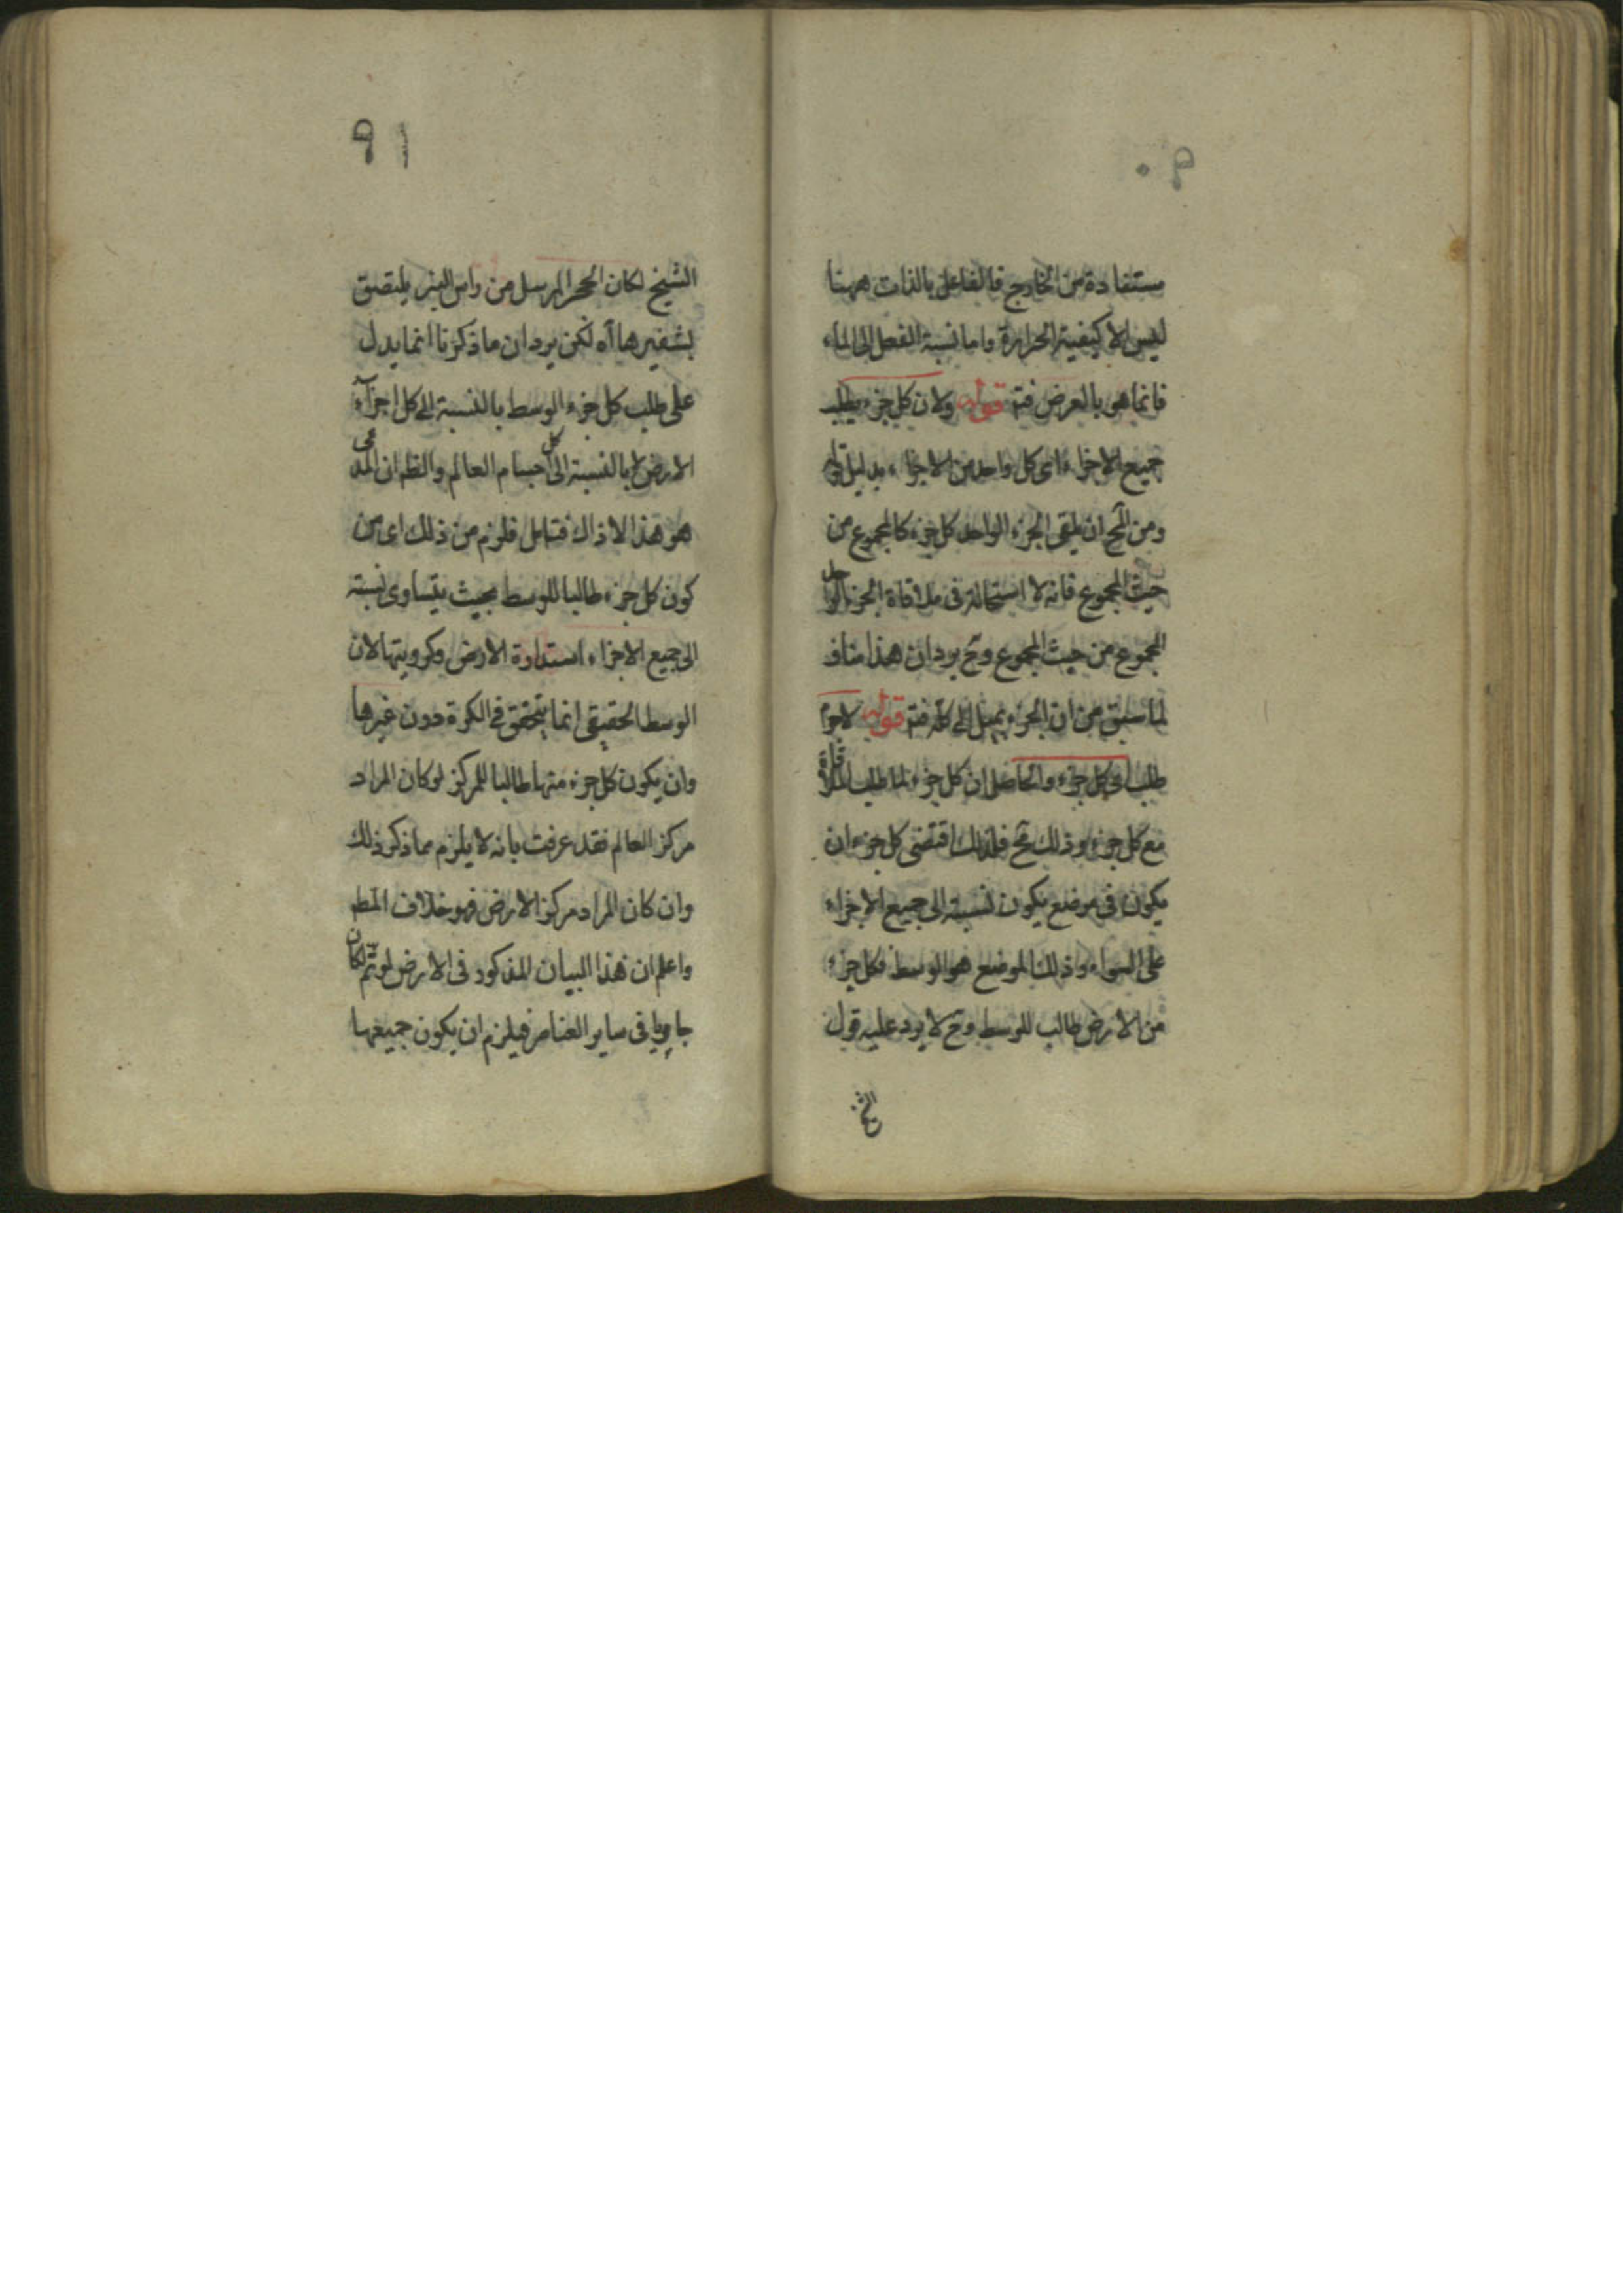 ٩٠
مستفادة من الخارج فالفاعل بالذات ههنا
ليس الا كيفية الحرارة واما نسبة الفعل الى الماء
فانما هى بالعرض فتم قوله ولان كل جزء يطلب
جميع الاجزاء اى كل واحد من الاجزاء بدليل قوله
ومن المح ان يلقى الجزء الواحد كل جزء كالمجموع من
حيث المجموع فانه لا استحالة فى ملاقاة الجزء الواحد
المجموع من حيث المجموع وح يرد ان هذا مناف
لما سبق من ان الجزء يميل الى كله فتم قوله لاجرم
طلب كل جزء والحاصل ان كل جزء لما طلب الملاقاة
مع كل جزء وذلك مح فلذلك اقتضى كل جزء ان
يكون فى موضع يكون نسبته الى جميع الاجزاء
على السواء وذلك الموضع هو الوسط فكل جزء
من الارض طالب للوسط وح لا يرد عليه قول
الشيخ
٩١
الشيخ لكان الحجر المرسل من راس البئر يلتصق
بشفيرها آه لكن يرد ان ما ذكرنا انما يدل
على طلب كل جزء الوسط بالنسبة الى كل اجزاء
الارض لا بالنسبة الى كل اجسام العالم والظ ان المدعى
هو هذا لا ذاك فتامل فلزم من ذلك اى من
كون كل جزء طالبا للوسط بحيث يتساوى نسبته
الى جميع الاجزاء استدارة الارض وكرويتها لان
الوسط الحقيقى انما يتحقق فى الكرة دون غيرها
وان يكون كل جزء منها طالبا للمركز لو كان المراد
مركز العالم فقد عرفت بانه لا يلزم مما ذكر ذلك
وان كان المراد مركز الارض فهو خلاف المط
واعلم ان هذا البيان المذكور فى الارض لو تم لكان
جاريا فى ساير العناصر فيلزم ان يكون جميعها